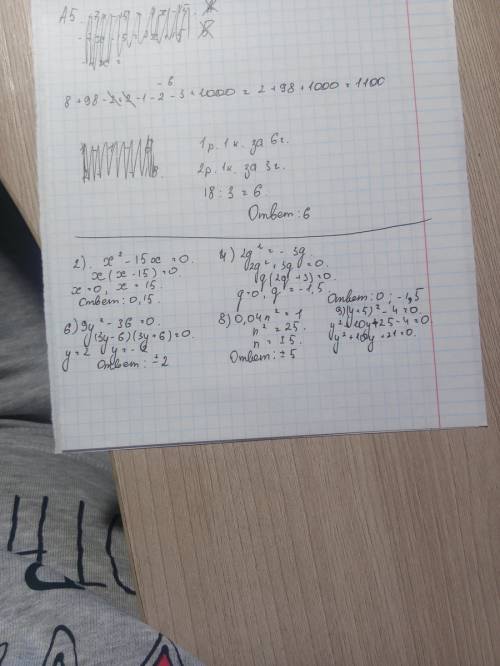 A5
- 6
8 + 98 - 2 + 2 - 1 - 2 - 3 + 1000 = 2 + 98 + 1000 = 1100
1р. 1к. за 6г.
2р. 1к. за 3г.
18 : 3 = 6.
Ответ: 6
2). x² - 15x = 0.
x(x - 15) = 0
x = 0, x = 15.
Ответ: 0, 15.
4) 2q² = - 3q.
2q² + 3q = 0.
q(2q + 3) = 0.
q = 0, q = - 1,5.
Ответ: 0 ; - 1,5
6) 9y² - 36 = 0.
(3y - 6)(3y + 6) = 0.
y = 2 y = - 2
Ответ: ± 2
8) 0,04n² = 1
n² = 25.
n = ± 5.
Ответ: ± 5
9) (y + 5)² - 4 = 0.
y² + 10y + 25 - 4 = 0
y² + 10y + 21 = 0.